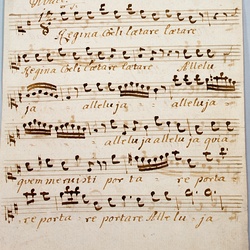 Vivace.
Regina Cœli lætare lætare
Regina Cœli lætare lætare Allelu
ja alleluja alleluja
alleluja alleluja quia
quem meruisti porta re porta
re porta re portare Allelu ja